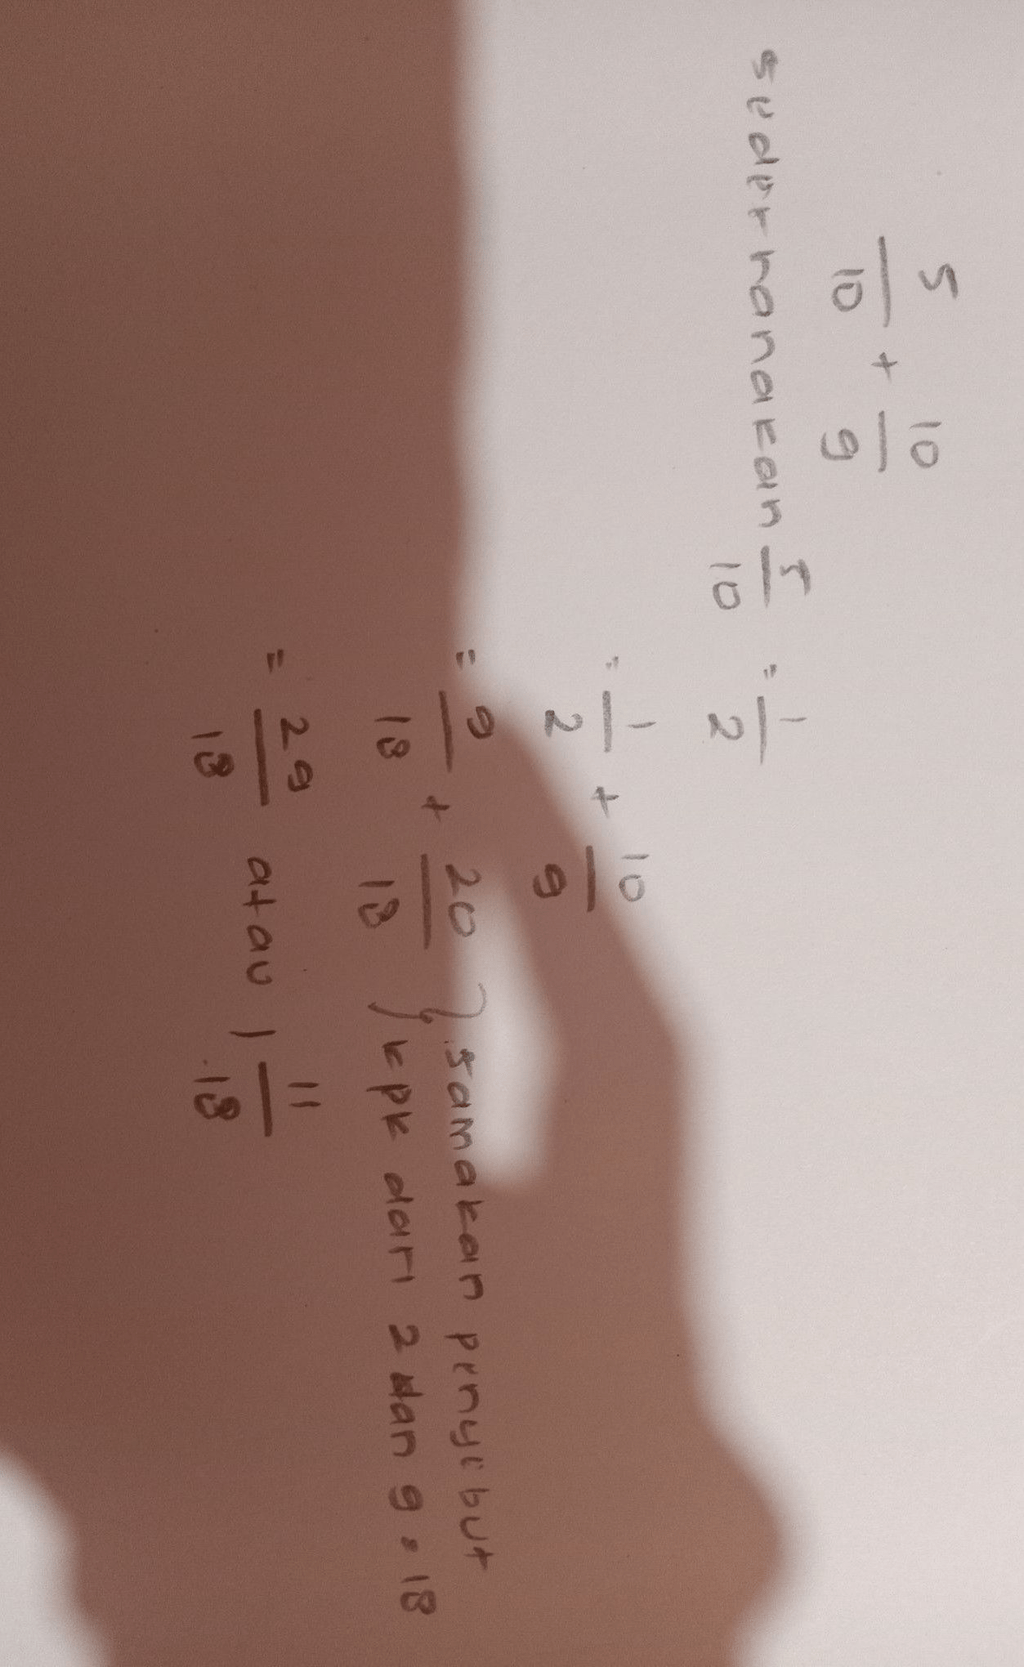 5/10 + 10/9
sederhanakan 5/10 = 1/2
= 1/2 + 10/9
= 9/18 + 20/18 } samakan penyebut kpk dari 2 dan 9 = 18
= 29/18 atau 1 11/18